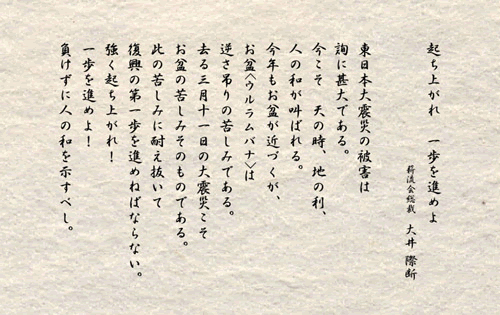 起ち上がれ　一歩を進めよ
薪流会総裁　大井 際断
東日本大震災の被害は
詢に甚大である。
今こそ　天の時、地の利、
人の和が叫ばれる。
今年もお盆が近づくが、
お盆〈ウルラムバナ〉は
逆さ吊りの苦しみである。
去る三月十一日の大震災こそ
お盆の苦しみそのものである。
此の苦しみに耐え抜いて
復興の第一歩を進めねばならない。
強く起ち上がれ！
一歩を進めよ！
負けずに人の和を示すべし。